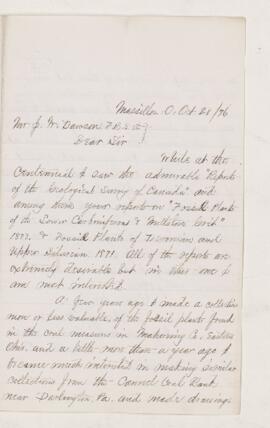 Massillon O. Oct 28/76
Mr J. W. Dawson F.R.S. &c
Dear Sir
While at the
Centennial I saw the admirable "Reports
of the Geological Survey of Canada" and
among them your reports on "Fossil Plants
of the Lower Carboniferous & Millstone Grit"
1873, & Fossil Plants of Devonian and
Upper Silurian 1871. All of the reports are
extremely desirable but in these two I
am most interested.
A few years ago I made a collection
more or less valuable, of the fossil plants found
in the coal measures in Mahoning Co. Eastern
Ohio. and a little more than a year ago I
became much interested in making similar
collections from the Cannel Coal Bank
near Darlington, Pa. and made drawings